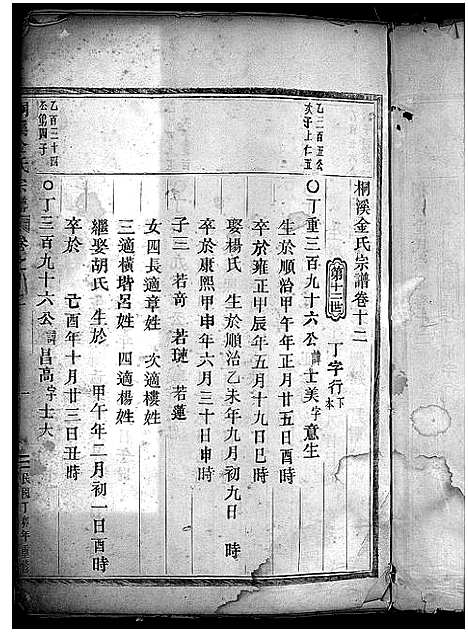 桐溪金氏宗譜卷十二
第十二世 丁字行下本
乙三百五公次子上仁五
丁重三百九十六公諱士美字意生
生於順治甲午年正月廿五日酉時
卒於雍正甲辰年五月十九日巳時
娶楊氏 生於順治乙未年九月初九日 時
卒於康熙甲申年六月三十日申時
子三 若奇 若璉 若蓮
女四長適章姓 次適樓姓
三適橫塔呂姓 四適楊姓
繼娶胡氏 生於 甲午年二月初一日酉時
卒於 己酉年十月廿三日丑時
乙百二十四
丁三百九十六公諱昌高字士大